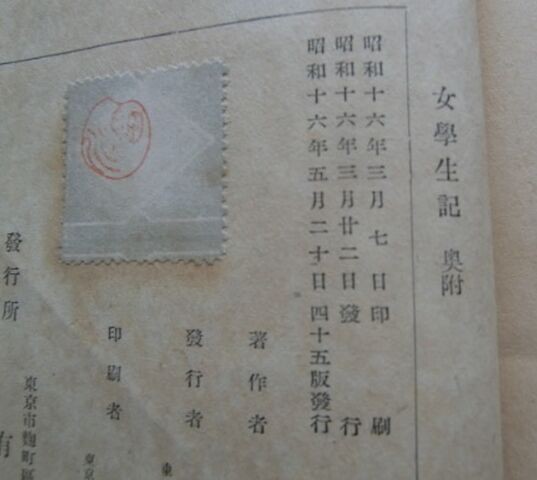 女學生記 奥附
昭和十六年三月七日印刷
昭和十六年三月廿二日發行
昭和十六年五月二十日四十五版發行
著作者
發行者
印刷者
東京市麴町區
發行所